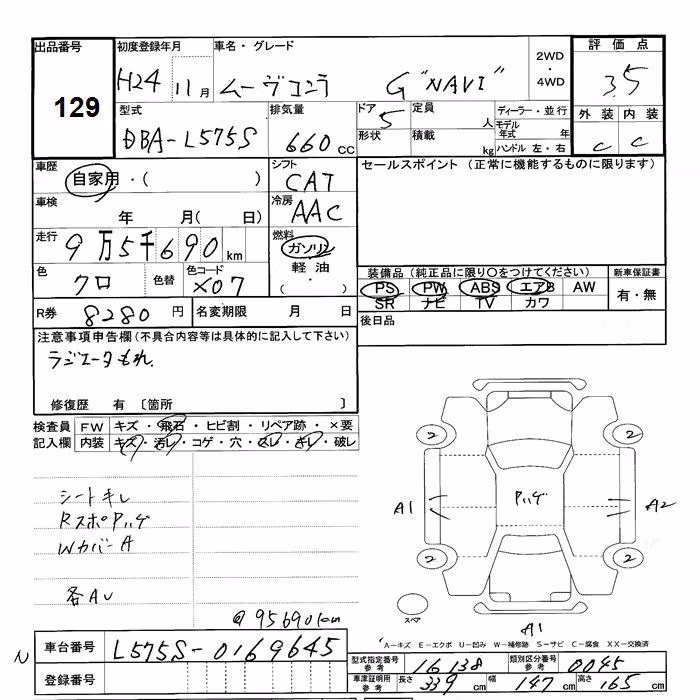 出品番号 初度登録年月 車名・グレード 2WD・4WD 評価点
129 H24 11月 ムーヴコンテ G "NAVI" 3.5
型式 排気量 ドア 定員 ディーラー・並行 外装 内装
DBA-L575S 660 CC 5 人 モデル年式 年 C C
形状 積載 kg ハンドル 左・右
車歴 自家用・( ) シフト CAT セールスポイント (正常に機能するものに限ります)
車検 年 月( 日) 冷房 AAC
走行 9万5千690km 燃料 ガソリン
軽油
( ・ )
色 クロ 色替 色コード X07
装備品 (純正品に限り○をつけてください) 新車保証書
PS PW ABS エアB AW 有・無
SR ナビ TV カワ
R券 8280 円 名変期限 月 日
後日品
注意事項申告欄(不具合内容等は具体的に記入して下さい)
ラジエータもれ.
修復歴 有 〔箇所 〕
検査員 FW キズ・飛石・ヒビ割・リペア跡・×要
記入欄 内装 キズ・汚レ・コゲ・穴・スレ・キレ・破レ
シートキレ
RスポPハゲ
WカバーA
各AU
@95690km
2 2
A1 Pハゲ A2
2 2
スペア A1
A-キズ E-エクボ U-凹み W-補修跡 S-サビ C-腐食 XX-交換済
N 車台番号 L575S-0169645
登録番号
型式指定番号 参考 16138 類別区分番号 参考 0045
車庫証明用 参考 長さ 339cm 幅 147cm 高さ 165cm